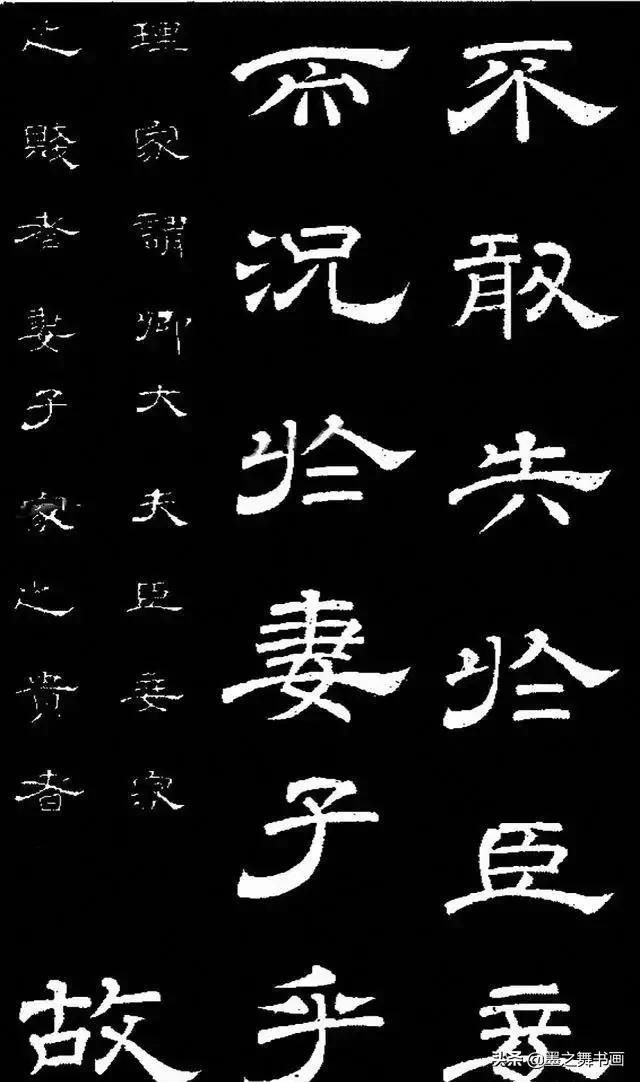 不敢失於臣妾
而況於妻子乎
理家謂卿大夫臣妾家
之賤者妻子家之貴者
故
头条 @墨之舞书画